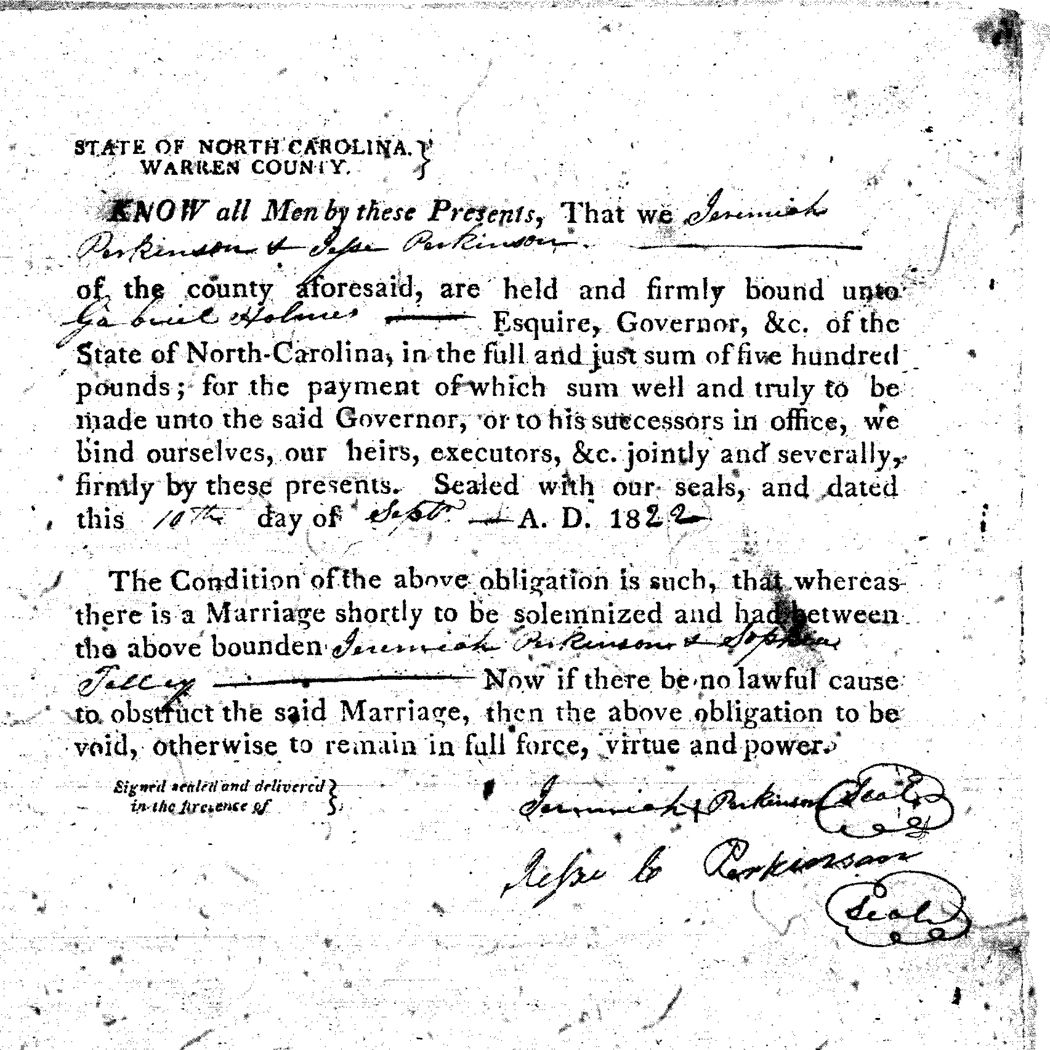 STATE OF NORTH CAROLINA. }
WARREN COUNTY.
KNOW all Men by these Presents, That we Jeremiah
Perkinson & Jesse Perkinson.
of the county aforesaid, are held and firmly bound unto
Gabriel Holmes Esquire, Governor, &c. of the
State of North-Carolina, in the full and just sum of five hundred
pounds; for the payment of which sum well and truly to be
made unto the said Governor, or to his successors in office, we
bind ourselves, our heirs, executors, &c. jointly and severally,
firmly by these presents. Sealed with our seals, and dated
this 10th day of Sept. A. D. 1822
The Condition of the above obligation is such, that whereas
there is a Marriage shortly to be solemnized and had between
the above bounden Jeremiah Perkinson & Sophia
Talley Now if there be no lawful cause
to obstruct the said Marriage, then the above obligation to be
void, otherwise to remain in full force, virtue and power.
Signed sealed and delivered }
in the presence of
Jeremiah Perkinson Seal
Jesse Perkinson
Seal